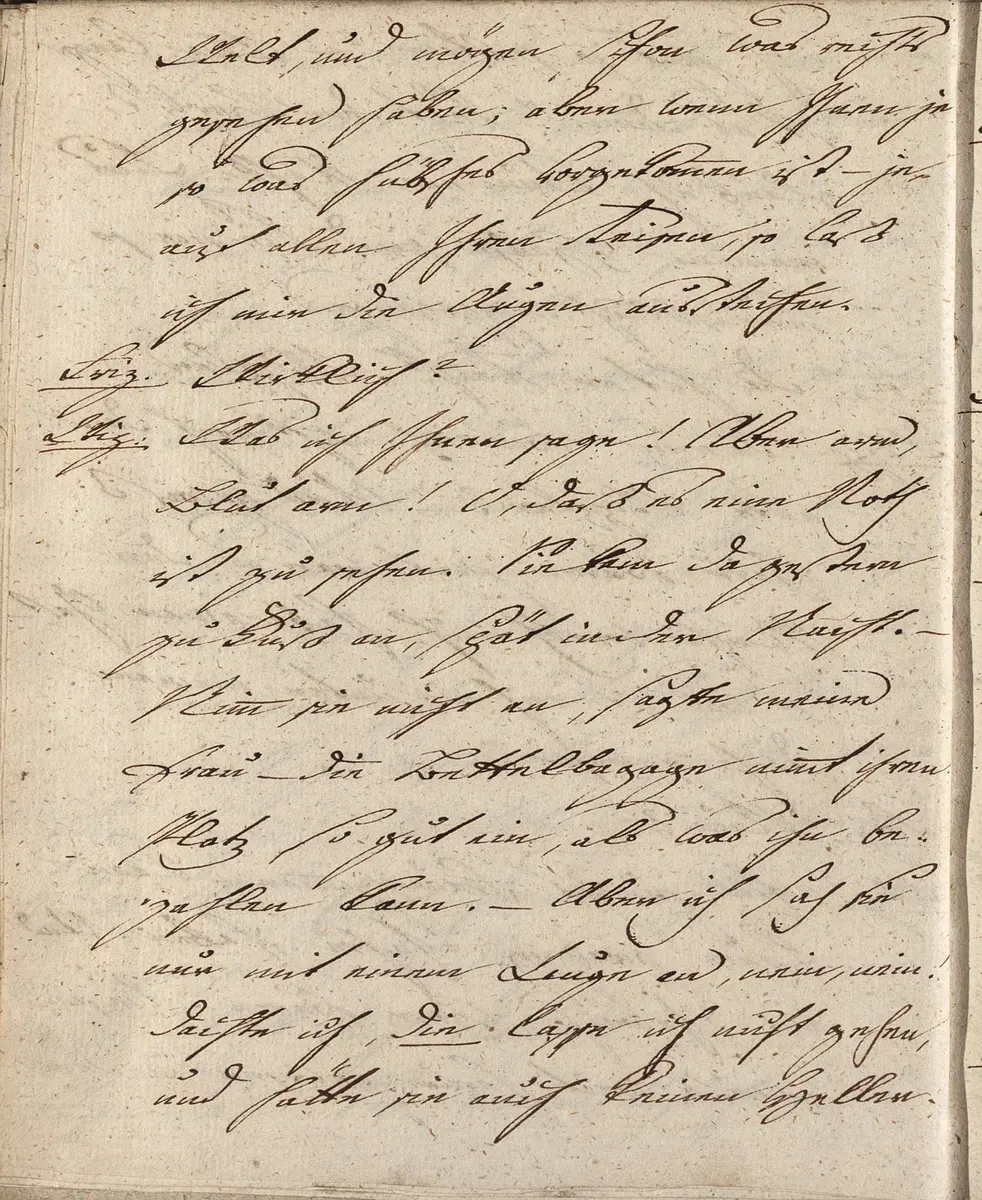 Welt, und mögen schon was rechts
gesehen haben; aber wenn Ihnen je
so was hübsches vorgekom̄en ist – je,
auf allen Ihren Reisen, so laß
ich mir die Augen ausstechen.
Friz. Wirklich?
Wiz. Was ich Ihnen sage! Aber arm,
Blutarm! O, daß es eine Noth
ist zu sehen. Sie kam da gestern
zu Fuß an, spät in der Nacht. –
Nim̄ sie nicht an, sagte meine
Frau – die Bettelbagage nim̄t ihren
Platz so gut ein, als was ihn be-
zahlen kann. – Aber ich sah sie
nur mit einem Auge an, nein, nein!
dachte ich, die lasse ich nicht gehen,
und hätte sie auch keinen Heller.